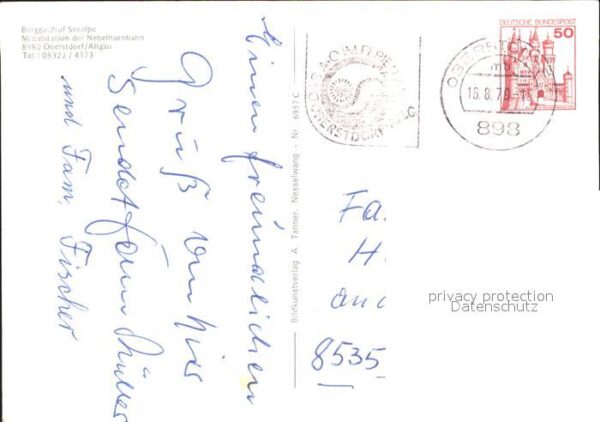 Berggasthof Seealpe
Mittelstation der Nebelhornbahn
8980 Oberstdorf/Allgäu
Tel.: 08322 / 4573
Einen freundlichen
Gruß von hier
sendet Fam. Müller
und Fam. Fischer
Bildkunstverlag A. Tanner, Nesselwang - Nr. 6957 C
OBERSTDORF
OBERSTDORF
16.8.79-15
898
DEUTSCHE BUNDESPOST
50
Fa
H
8535
privacy protection
Datenschutz